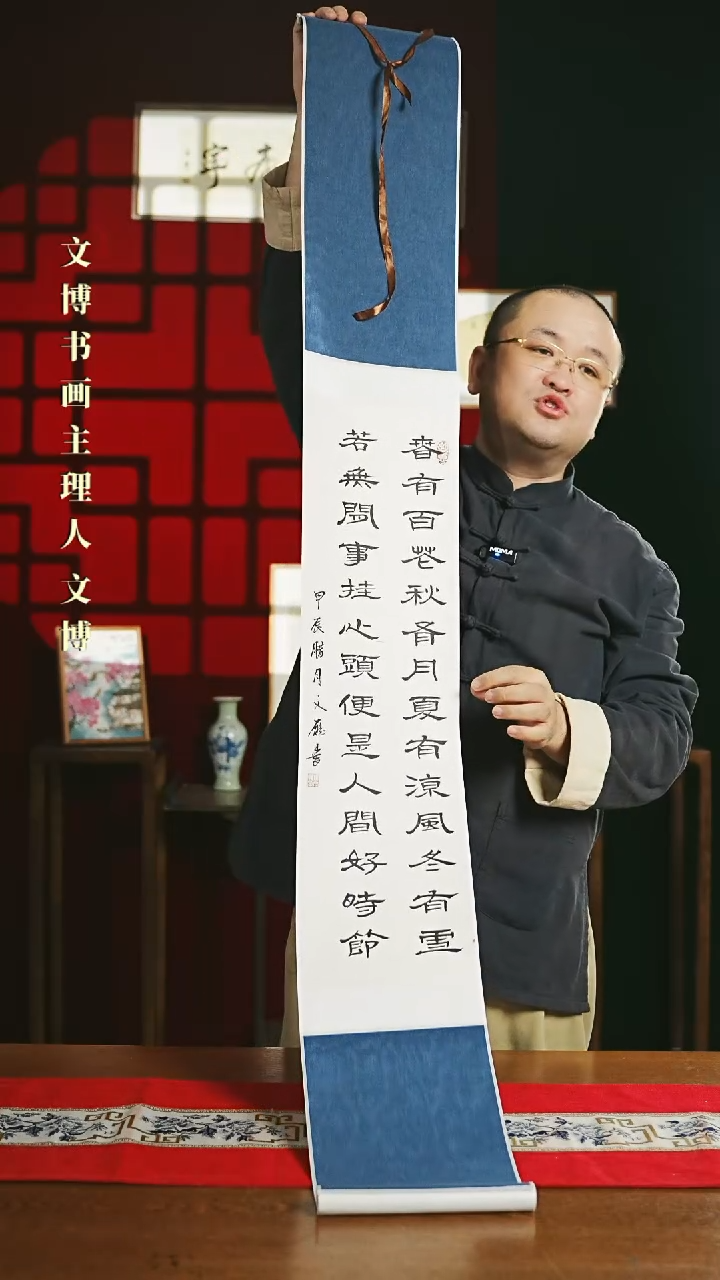 文博书画主理人 文博
春有百花秋有月夏有涼風冬有雪
若無閒事挂心頭便是人間好時節
甲辰臘月文書
MOMA